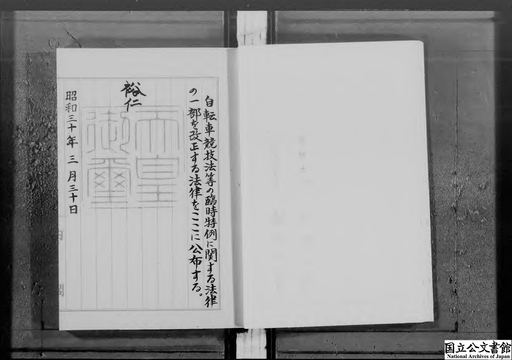 自転車競技法等の臨時特例に関する法律
の一部を改正する法律をここに公布する。
裕仁
天皇
御璽
昭和三十年三月三十日
国立公文書館
National Archives of Japan